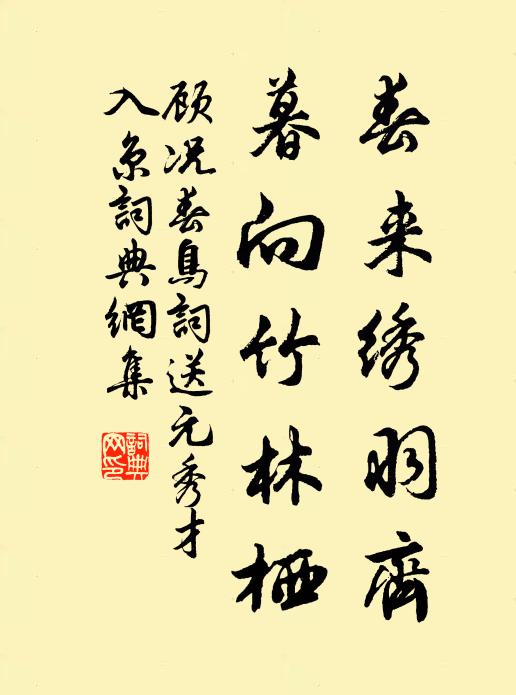 春来绣羽齊
暮向竹林栖
顾况春鳥詞送元秀才
入京詞典網集
詞典网印